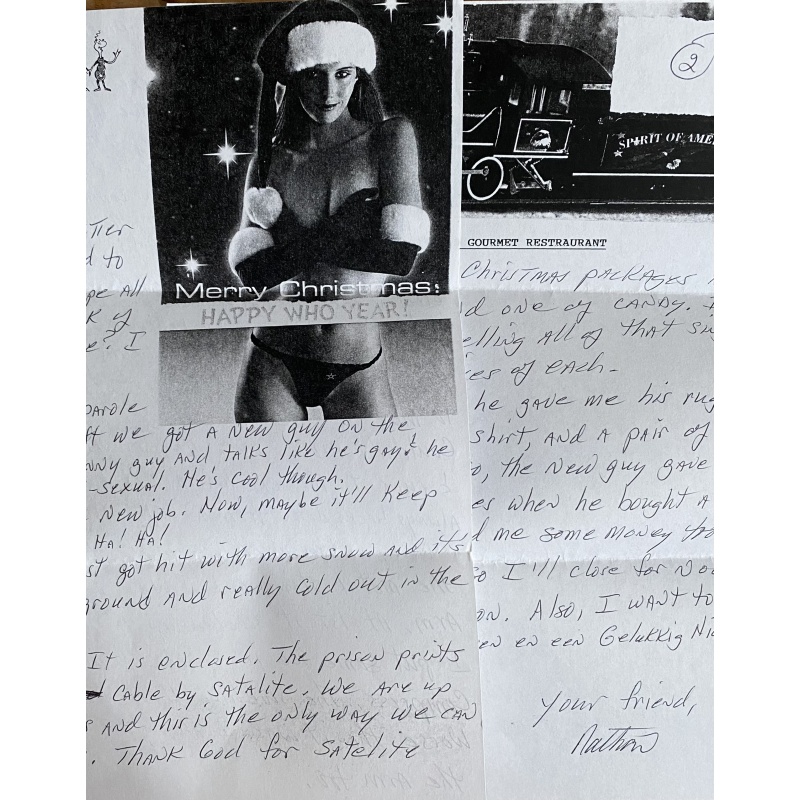 Merry Christmas:
HAPPY WHO YEAR!
Tier
d to
pe all
k of
e? I
parole
ft we got a new guy on the
nny guy and talks like he's gay! he
-sexual. He's cool though.
new job. Now, maybe it'll keep
Ha! Ha!
st got hit with more snow and it's
ground and really cold out in the
It is enclosed. The prison prints
cable by satalite. We are up
s and this is the only way we can
. Thank God for satelite
2
SPIRIT OF AME
GOURMET RESTRAURANT
Christmas packages
d one of candy.
elling all of that
ies of each-
he gave me his rug
shirt, and a pair of
o, the new guy gave
es when he bought a
d me some money fro
so I'll close for now
on. Also, I want to
en en een Gelukkig Ni
Your friend,
Nathan